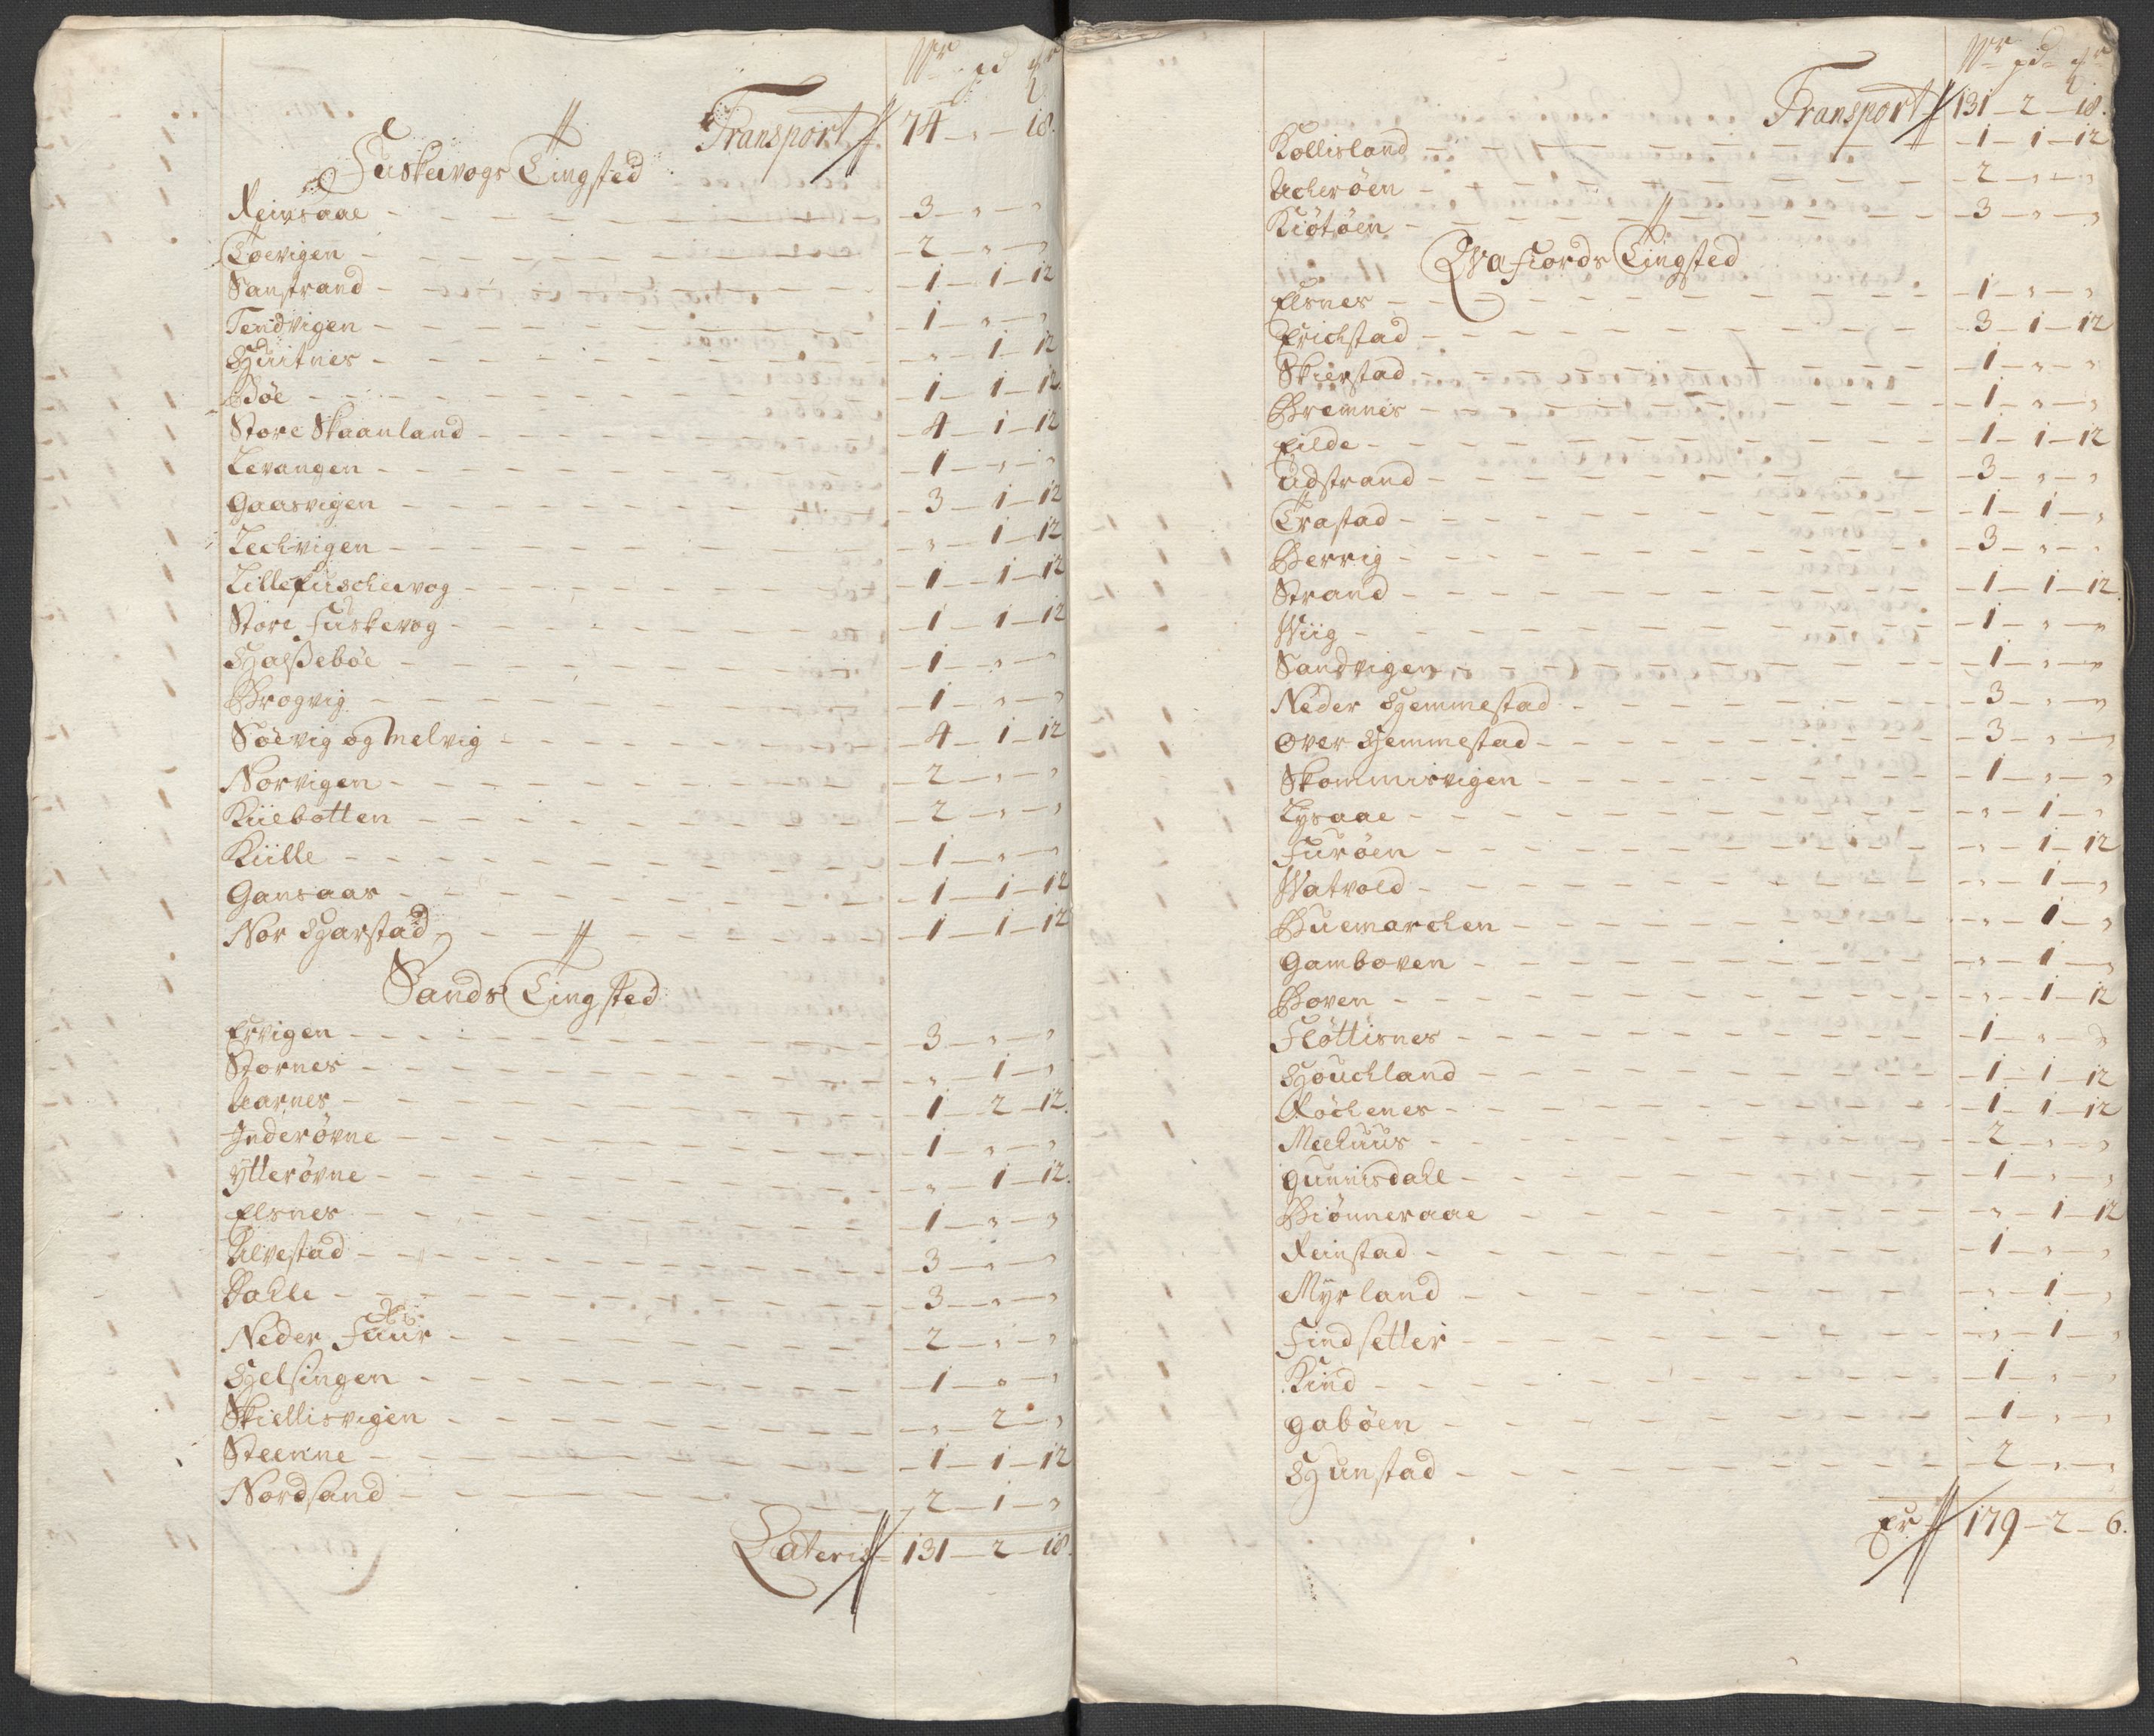 Wr pd
Transport 74 – „ – 18.
Fuskevogs Tingsted
Reinsaae – 3 – „ – „
Toevigen – 2 – „ – „
Sanstrand – 1 – 1 – 12
Tendvigen – 1 – „ – „
Huitnes – „ – 1 – 12
Bøe – 1 – 1 – 12
Store Skaanland – 4 – 1 – 12
Levangen – 1 – „ – „
Gaasvigen – 3 – 1 – 12
Lechvigen – „ – 1 – 12
Lille fuschevog – 1 – 1 – 12
Store Fuskevog – 1 – 1 – 12
Halßebøe – 1 – „ – „
Brogvig – 1 – „ – „
Søevig og Melvig – 4 – 1 – 12
Norvigen – 2 – „ – „
Kiiebotten – 2 – „ – „
Kiille – 1 – „ – „
Gansaas – 1 – 1 – 12
Nor Harstad – 1 – 1 – 12
Sands Tingsted
Ervigen – 3 – „ – „
Stornes – „ – 1 – „
Aarnes – 1 – 2 – 12.
Inderøvne – 1 – „ – „
Ytterøvne – „ – 1 – 12.
Elsnes – 1 – „ – „
Alvestad – 3 – „ – „
Dahle – 3 – „ – „
Neder Fuur – 2 – „ – „
Helsingen – 1 – „ – „
Skiellisvigen – „ – 2 – „
Steenne – 1 – 1 – 12
Nordsand – 2 – 1 – „
Lateris 131 – 2 – 18.
Wr pd
Transport 131 – 2 – 18.
Kollisland – 1 – 1 – 12
Acherøen – 2 – „ – „
Kiøtøen – 3 – „ – „
Qvafiords Tingsted
Elsnes – 1 – „ – „
Erichstad – 3 – 1 – 12
Skierstad – 1 – „ – „
Bremnes – 1 – „ – „
Eilde – 1 – 1 – 12
Udstrand – 3 – „ – „
Trastad – 1 – 1 – „
Berrig – 3 – „ – „
Strand – 1 – 1 – 12.
Wiig – 1 – „ – „
Sandvigen – 1 – „ – „
Neder Hemmestad – 3 – „ – „
Over Hemmestad – 3 – „ – „
Skommisvigen – 1 – „ – „
Lysaae – „ – 1 – „
Furøen – „ – 1 – 12
Watvold – „ – 1 – „
Buemarchen – „ – 1 – „
Gamboven – „ – 1 – „
Boven – „ – 1 – 12
Fløttisnes – 1 – „ – „
Houchland – 1 – 1 – 12
Røchenes – 1 – 1 – 12
Meehuus – 2 – „ – „
Gunnisdahl – 1 – „ – „
Biønneraae – „ – 1 – 12
Reinstad – 1 – „ – „
Myrland – „ – 1 – „
Findsetter – „ – 1 – „
Kind – 1 – „ – „
Gabøen – 1 – „ – „
Hunstad – 2 – „ – „
Er 179 – 2 – 6.